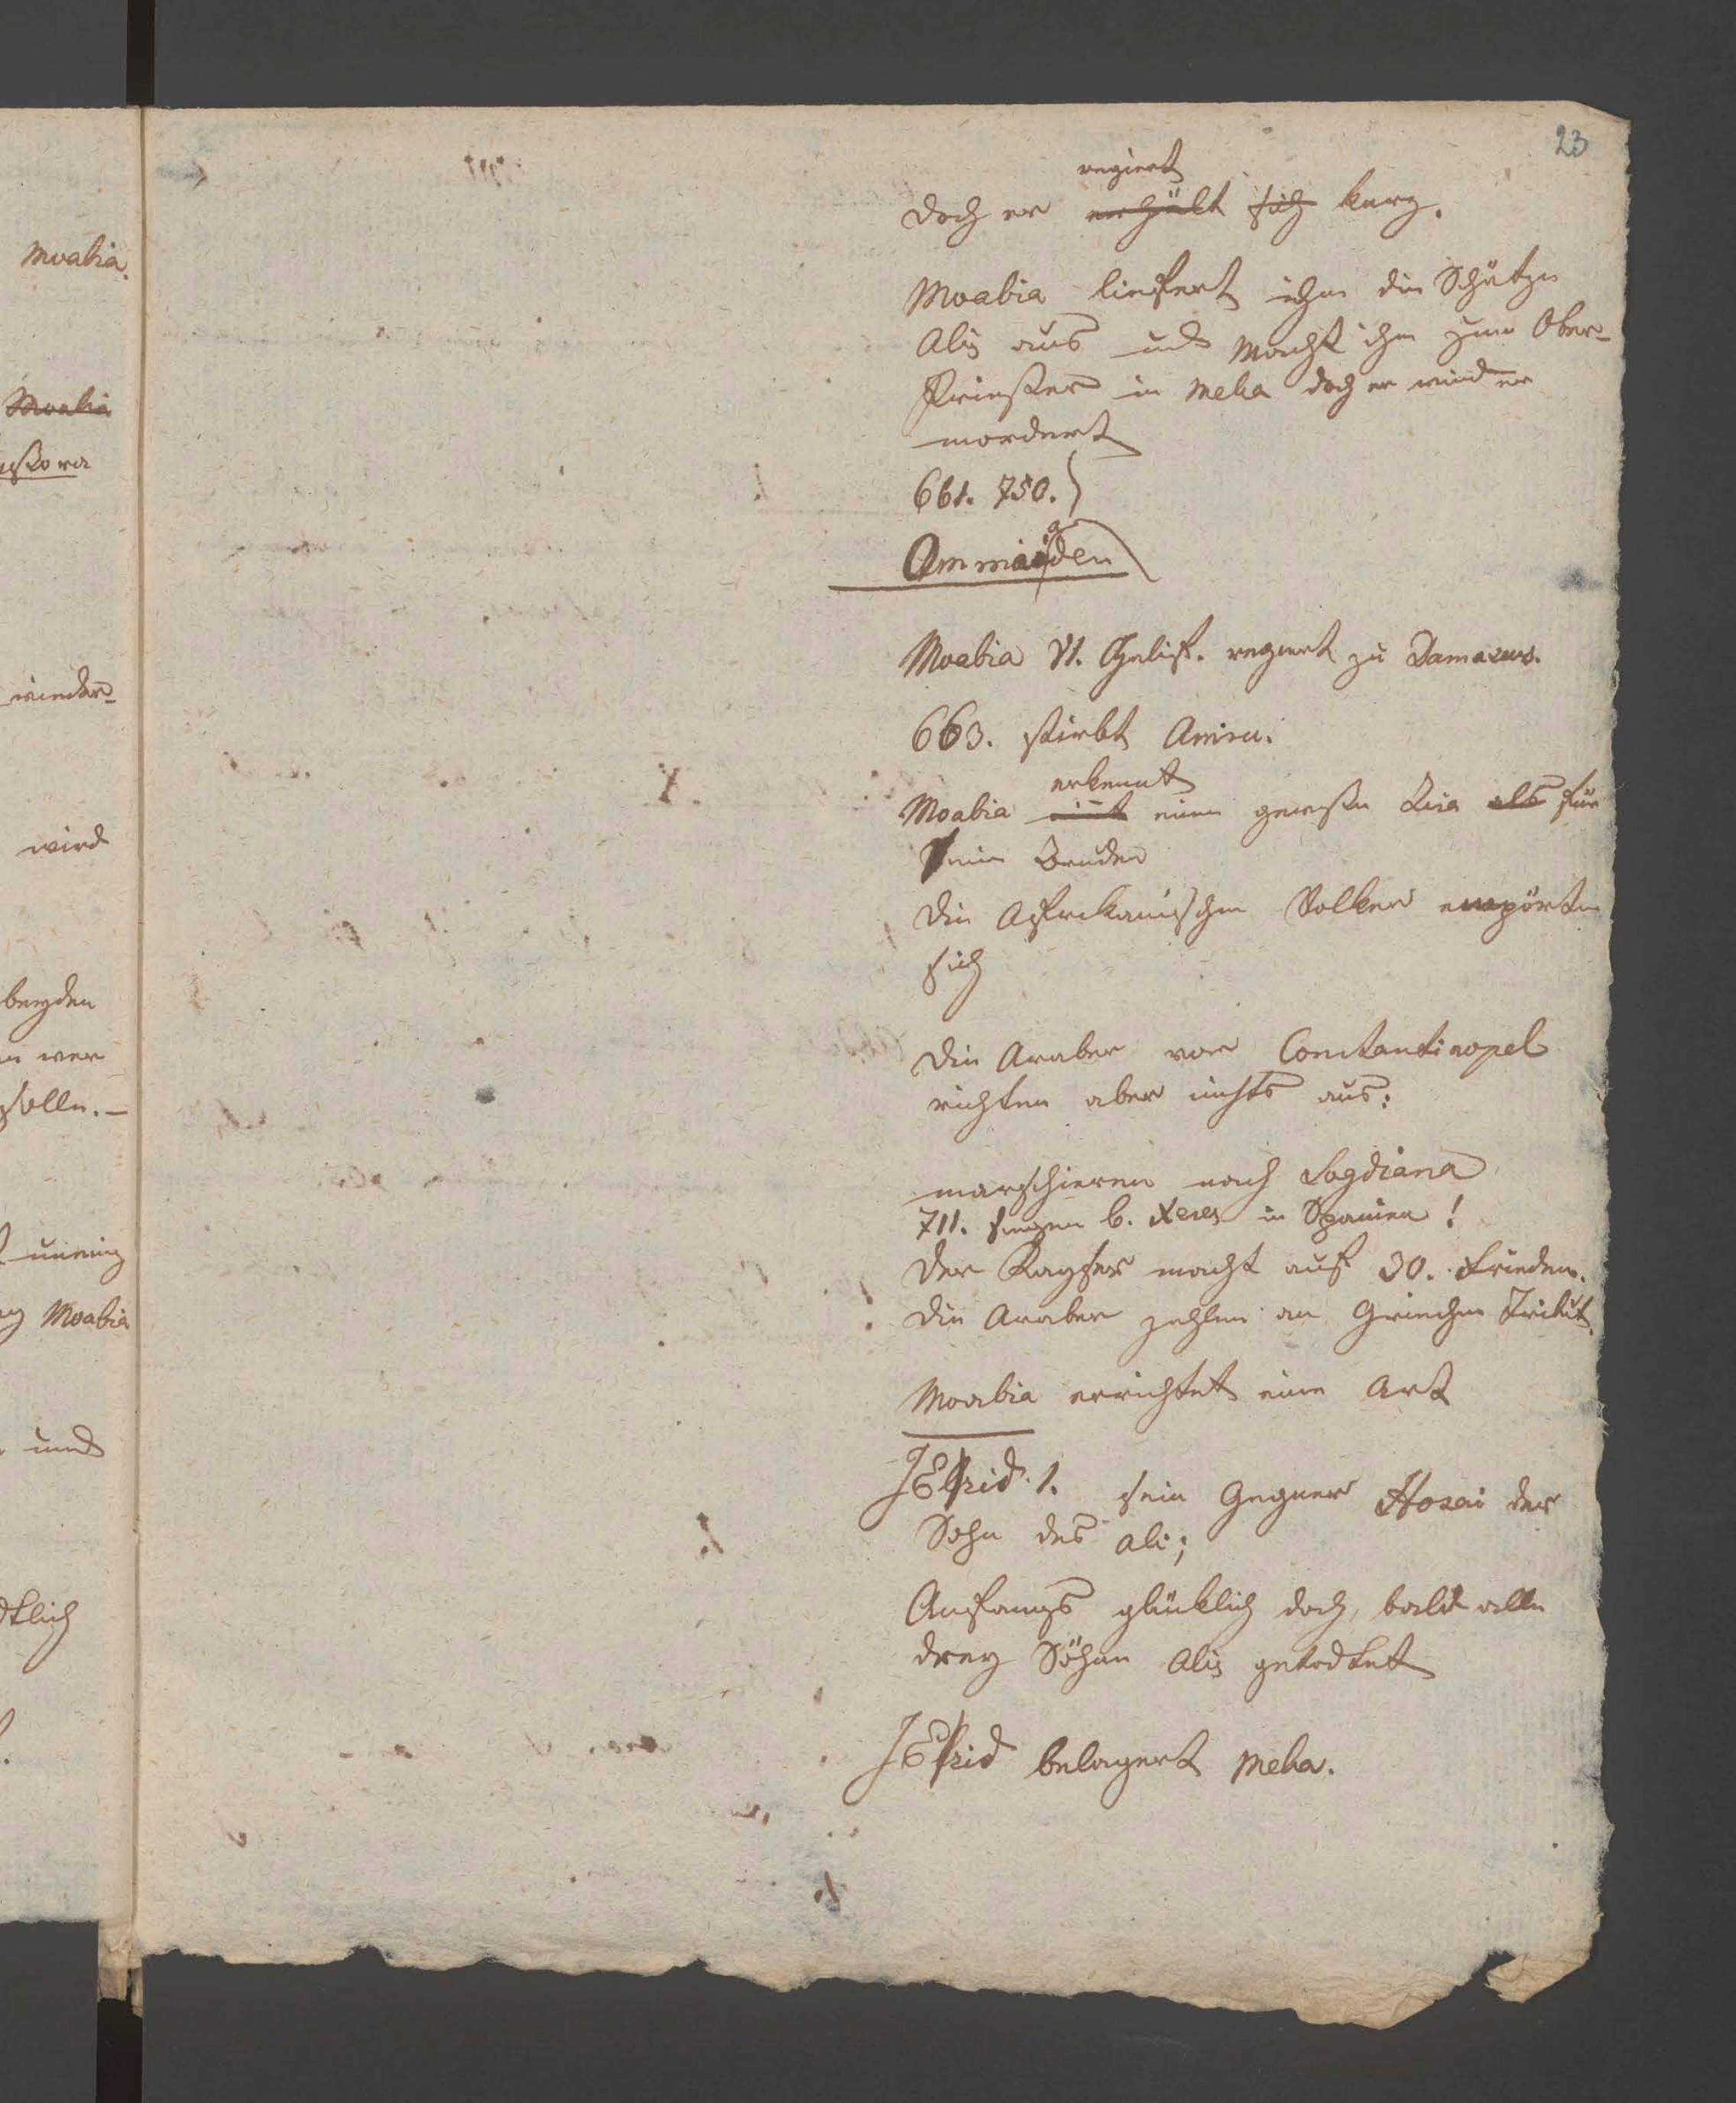 23
regiert
doch er erhält sich kurz.
Moabia liefert ihm die Schätze
Alis aus und macht ihn zum Ober-
Priester in Meka doch er wird er
mordert
661. 750.
Ommiaden
Moabia VI. Chalif. regiert zu Damascus.
663. stirbt Amru.
erkennt
Moabia einen gewissen Zia als für
sein Bruder
Die Afrikanischen Volker empörten
sich
Die Araber vor Constantinopel
richten aber nichts aus:
marschieren nach Sogdiana
711. siegen b. Xeres in Spanien!
Der Kayser macht auf 30. Frieden.
Die Araber zahlen an Griechen Tribut.
Moabia errichtet eine Art
Jesid 1. sein Gegner Hosai der
Sohn des Ali;
Anfangs glücklich doch bald alle
drey Söhne Alis getodtet
Jesid belagert Meka.
Moabia.
Moabia
wieder-
wird
beyden
wer
solle.-
uneinig
Moabia
und